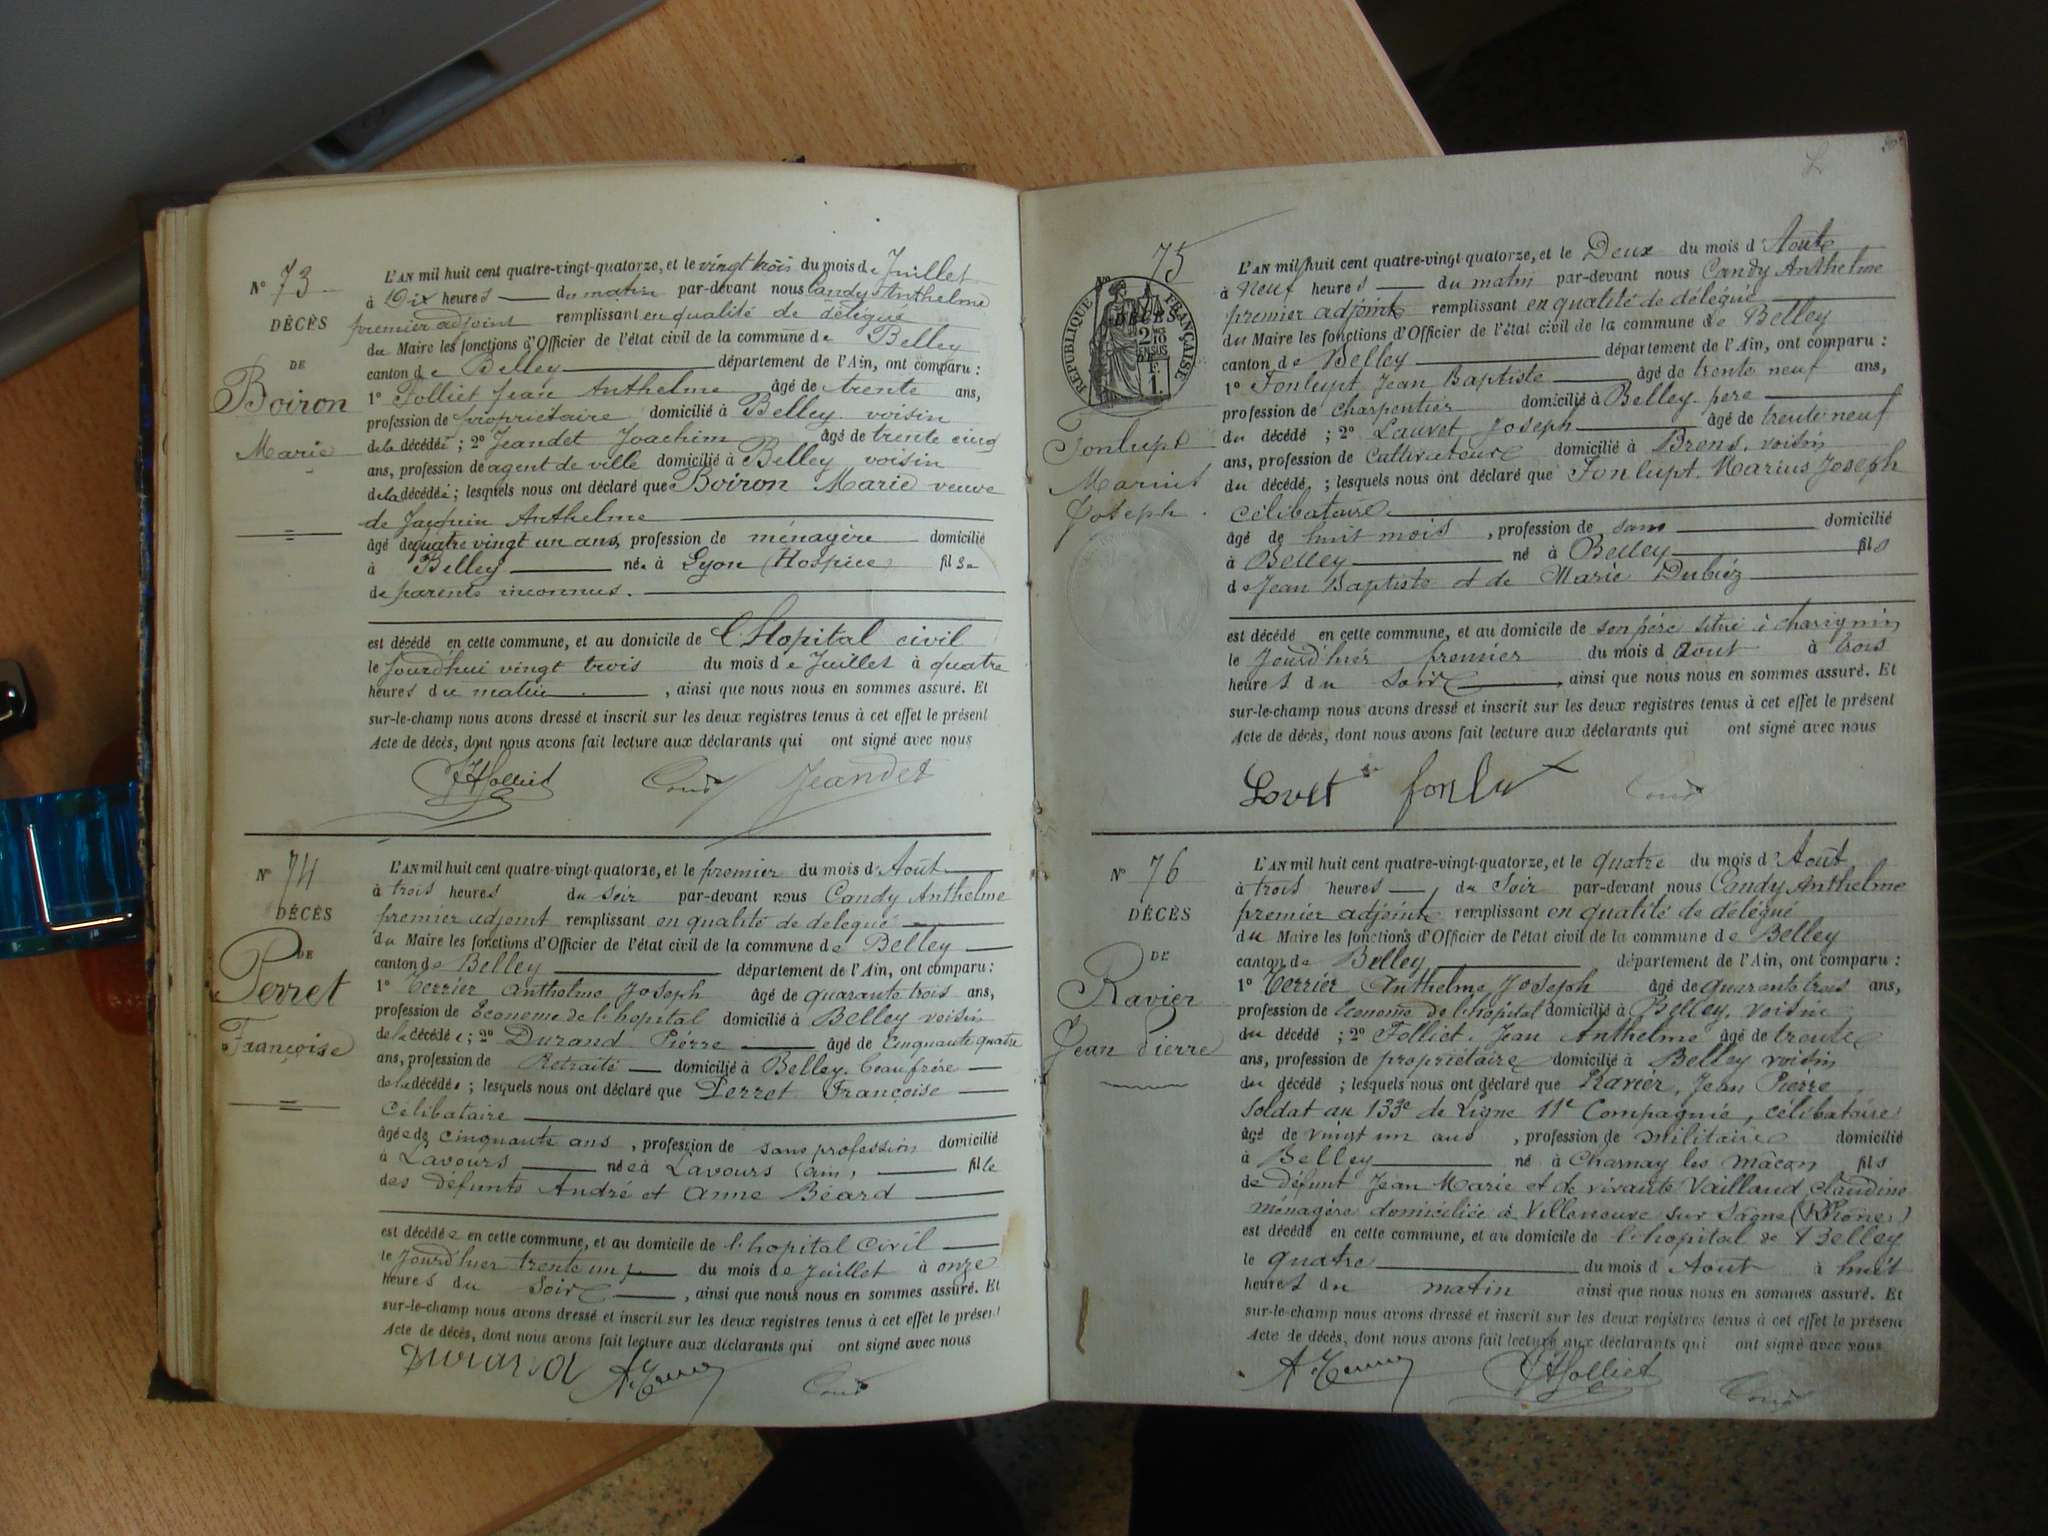 N° 73
DÉCÈS
DE
Boiron
Marie
L'AN mil huit cent quatre-vingt-quatorze, et le vingt trois du mois de Juillet
à Dix heures du matin par-devant nous Candy Anthelme
premier adjoint remplissant en qualité de délégué
du Maire les fonctions d'Officier de l'état civil de la commune de Belley
canton de Belley département de l'Ain, ont comparu :
1° Folliet Jean Anthelme âgé de trente ans,
profession de propriétaire domicilié à Belley voisin
de la décédée ; 2° Jeandet Joachim âgé de trente cinq
ans, profession de agent de ville domicilié à Belley voisin
de la décédée ; lesquels nous ont déclaré que Boiron Marie veuve
de Jacquin Anthelme
âgé de quatre vingt un ans, profession de ménagère domicilié
à Belley née à Lyon (Hospice) fille
de parents inconnus.
est décédé en cette commune, et au domicile de l'Hopital civil
le jourd'hui vingt trois du mois de Juillet à quatre
heures du matin , ainsi que nous nous en sommes assuré. Et
sur-le-champ nous avons dressé et inscrit sur les deux registres tenus à cet effet le présent
Acte de décès, dont nous avons fait lecture aux déclarants qui ont signé avec nous
JAfolliet Jeandet
N° 74
DÉCÈS
DE
Perret
Françoise
L'AN mil huit cent quatre-vingt-quatorze, et le premier du mois d'Août
à trois heures du soir par-devant nous Candy Anthelme
premier adjoint remplissant en qualité de délégué
du Maire les fonctions d'Officier de l'état civil de la commune de Belley
canton de Belley département de l'Ain, ont comparu :
1° Terrier Anthelme Joseph âgé de quarante trois ans,
profession de Econome de l'hopital domicilié à Belley voisin
de la décédée ; 2° Durand Pierre âgé de cinquante quatre
ans, profession de Retraité domicilié à Belley. beau frère
de la décédée ; lesquels nous ont déclaré que Perret Françoise
célibataire
âgée de cinquante ans , profession de sans profession domicilié
à Lavours née à Lavours (ain) fille
des défunts André et Anne Béard
est décédée en cette commune, et au domicile de l'hopital civil
le jourd'hier trente un du mois de Juillet à onze
heures du Soir , ainsi que nous nous en sommes assuré. Et
sur-le-champ nous avons dressé et inscrit sur les deux registres tenus à cet effet le présent
Acte de décès, dont nous avons fait lecture aux déclarants qui ont signé avec nous
Durand
75
RÉPUBLIQUE FRANÇAISE
DÉCÈS
Fonlupt
Marius
Joseph
L'AN mil huit cent quatre-vingt-quatorze, et le Deux du mois d'Août
à neuf heures du matin par-devant nous Candy Anthelme
premier adjoint remplissant en qualité de délégué
du Maire les fonctions d'Officier de l'état civil de la commune de Belley
canton de Belley département de l'Ain, ont comparu :
1° Fonlupt Jean Baptiste âgé de trente neuf ans,
profession de charpentier domicilié à Belley. père
du décédé ; 2° Lauvet Joseph âgé de trente neuf
ans, profession de Cultivateur domicilié à Brens. voisin
du décédé ; lesquels nous ont déclaré que Fonlupt. Marius Joseph
célibataire
âgé de huit mois , profession de sans domicilié
à Belley né à Belley fils
de Jean Baptiste et de Marie Dubiéz
est décédé en cette commune, et au domicile de son père situé à charignin
le jourd'hier premier du mois d'aout à trois
heures du soir , ainsi que nous nous en sommes assuré. Et
sur-le-champ nous avons dressé et inscrit sur les deux registres tenus à cet effet le présent
Acte de décès, dont nous avons fait lecture aux déclarants qui ont signé avec nous
Lovet
N° 76
DÉCÈS
DE
Ravier
Jean Pierre
L'AN mil huit cent quatre-vingt-quatorze, et le quatre du mois d'Août
à trois heures du Soir par-devant nous Candy Anthelme
premier adjoint remplissant en qualité de délégué
du Maire les fonctions d'Officier de l'état civil de la commune de Belley
canton de Belley département de l'Ain, ont comparu :
1° Terrier Anthelme Joseph âgé de quarante trois ans,
profession de Econome de l'hopital domicilié à Belley. voisin
du décédé ; 2° Folliet. Jean Anthelme âgé de trente
ans, profession de propriétaire domicilié à Belley voisin
du décédé ; lesquels nous ont déclaré que Ravier, Jean Pierre
soldat au 133e de Ligne 11e Compagnie, célibataire
âgé de vingt un ans , profession de militaire domicilié
à Belley né à Charnay les mâcon fils
de défunt Jean Marie et de vivante Vailland Claudine
ménagère domiciliée à Villeneuve sur Sagne (Rhône)
est décédé en cette commune, et au domicile de l'hopital de Belley
le quatre du mois d'Aout à huit
heures du matin ainsi que nous nous en sommes assuré. Et
sur-le-champ nous avons dressé et inscrit sur les deux registres tenus à cet effet le présent
Acte de décès, dont nous avons fait lecture aux déclarants qui ont signé avec nous
JAfolliet